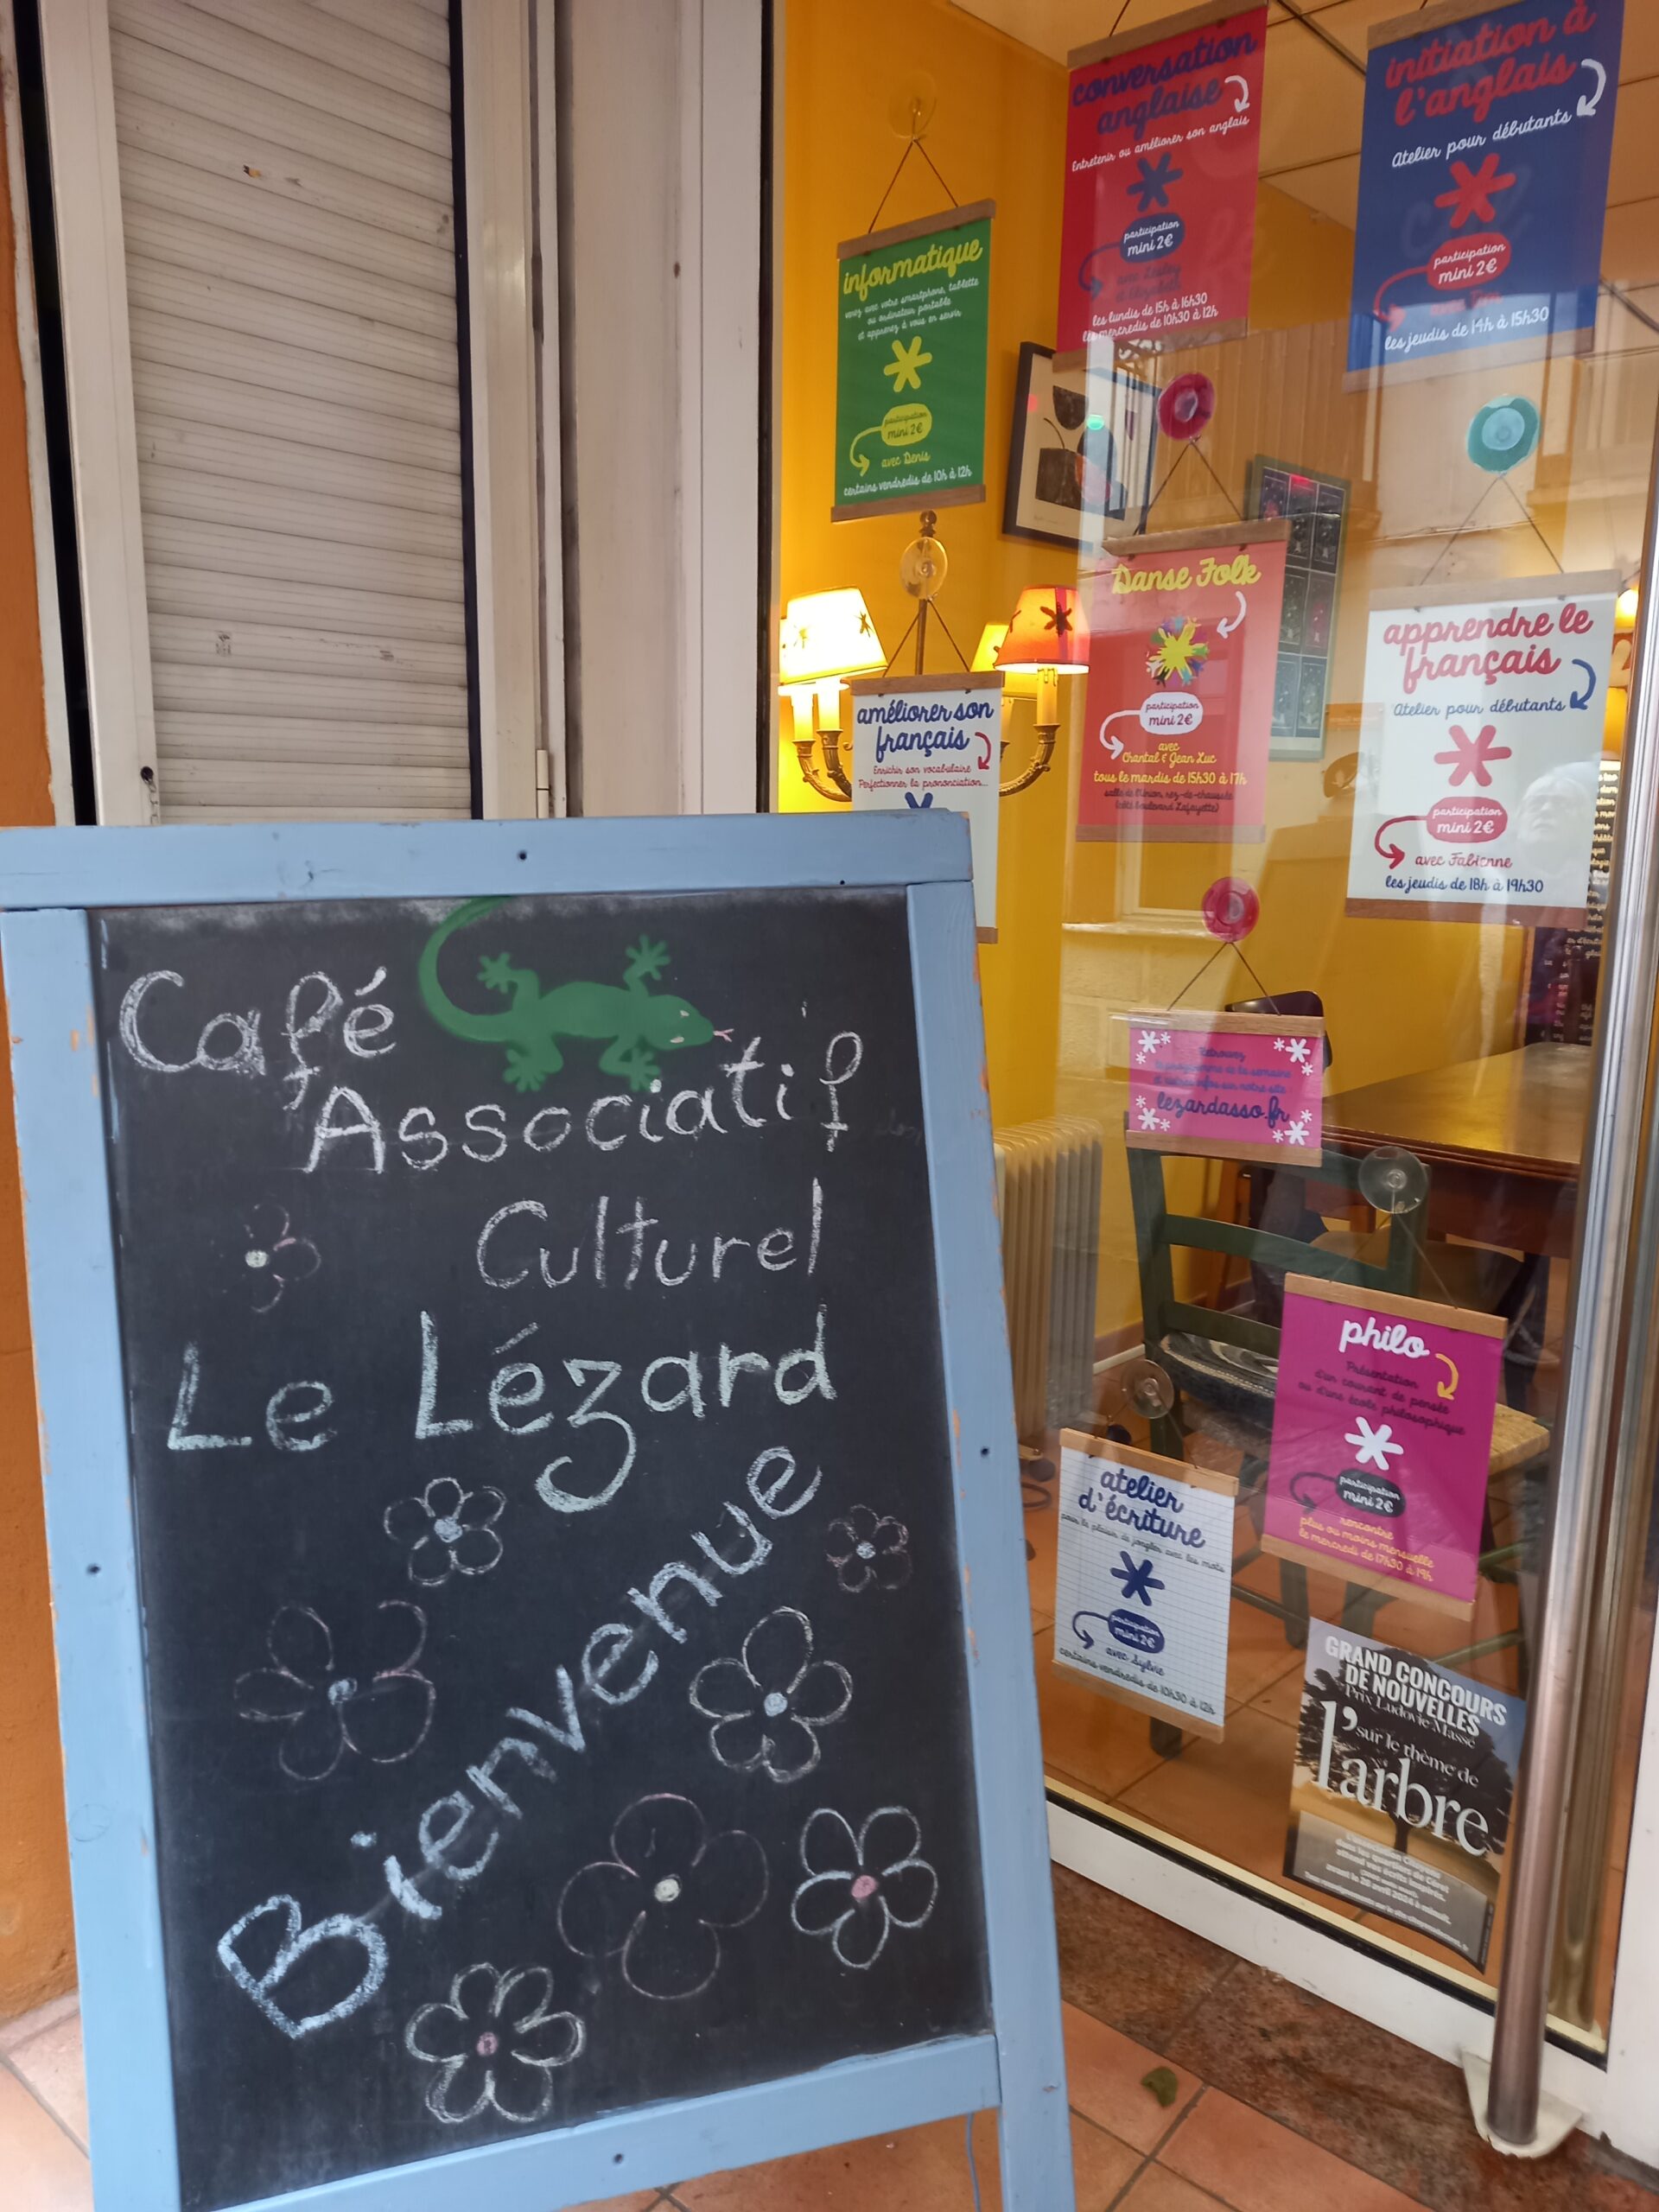 Café
Associatif
Culturel
Le Lézard
Bienvenue
informatique
venez avec votre smartphone, tablette
ou ordinateur portable
et apprenez à vous en servir
participation
mini 2€
avec Denis
certains vendredis de 10h à 12h
conversation
anglaise
Entretenir ou améliorer son anglais
participation
mini 2€
les lundis de 15h à 16h30
les mercredis de 10h30 à 12h
initiation à
l'anglais
Atelier pour débutants
participation
mini 2€
les jeudis de 14h à 15h30
améliorer son
français
Enrichir son vocabulaire
Perfectionner la prononciation...
Danse Folk
participation
mini 2€
avec
Chantal & Jean Luc
tous le mardis de 15h30 à 17h
salle de l'union, rez-de-chaussée
(côté boulevard Lafayette)
apprendre le
français
Atelier pour débutants
participation
mini 2€
avec Fabienne
les jeudis de 18h à 19h30
Retrouvez
le programme de la semaine
et autres infos sur notre site
lezardasso.fr
philo
Présentation
d'un courant de pensée
ou d'une école philosophique
participation
mini 2€
rencontre
plus ou moins mensuelle
le mercredi de 17h30 à 19h
atelier
d'écriture
pour le plaisir de jongler avec les mots
participation
mini 2€
avec Sylvie
certains vendredis de 10h30 à 12h
GRAND CONCOURS
DE NOUVELLES
Prix Ludovic Massé
sur le thème de
l'arbre